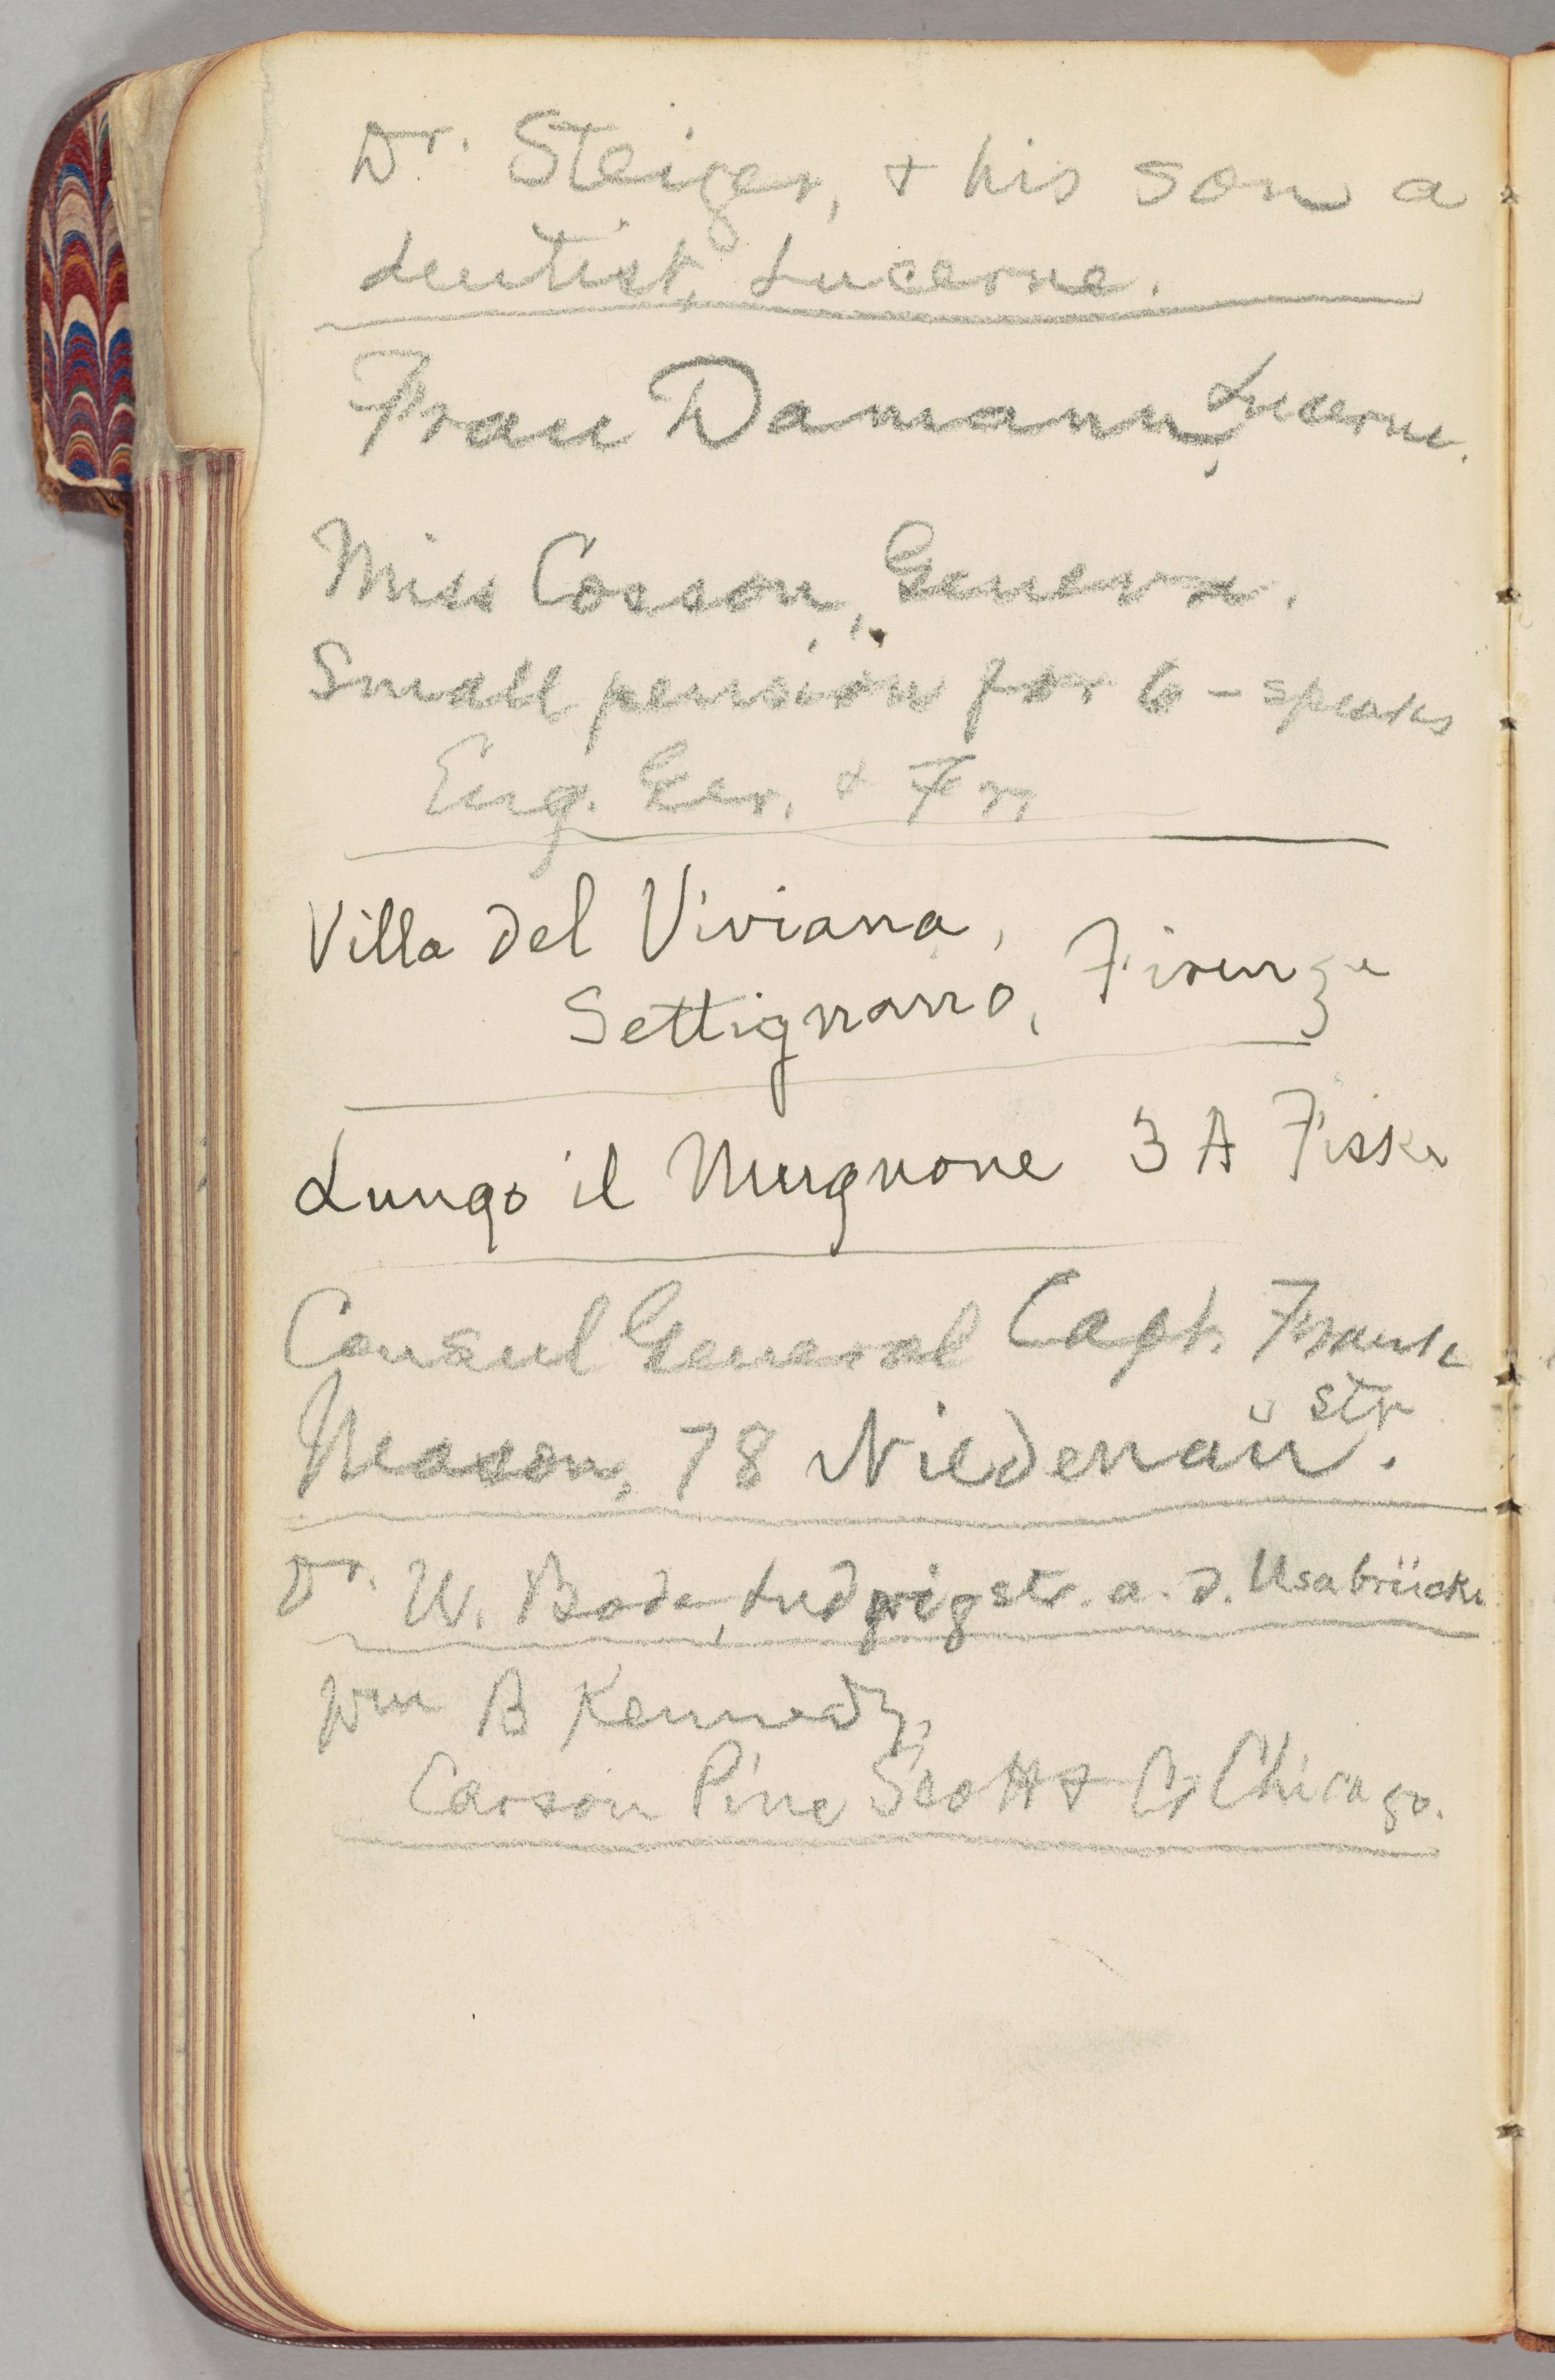 Dr. Steiger, + his son a
dentist, Lucerne.
Frau Damann, Lucerne.
Miss Cosson, Geneva.
Small pension for 6 - speaks
Eng. Ger. + Fr.
Villa del Viviana,
Settignano, Firenze
Lungo il Mugnone 3 A Fiske
Consul General Capt. Frank
Mason, 78 Niedenau str.
Dr. W. Bode, Ludwigstr. a. d. Usabrücke
Wm B Kennedy,
Carson Pirie Scott & Co Chicago.